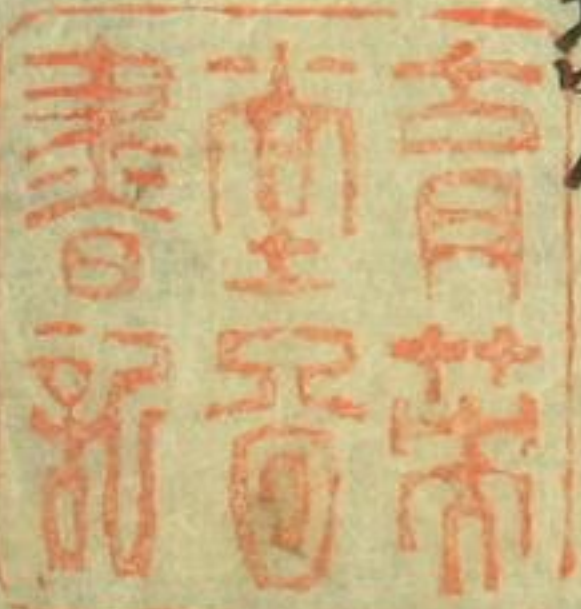 育英
堂
書記